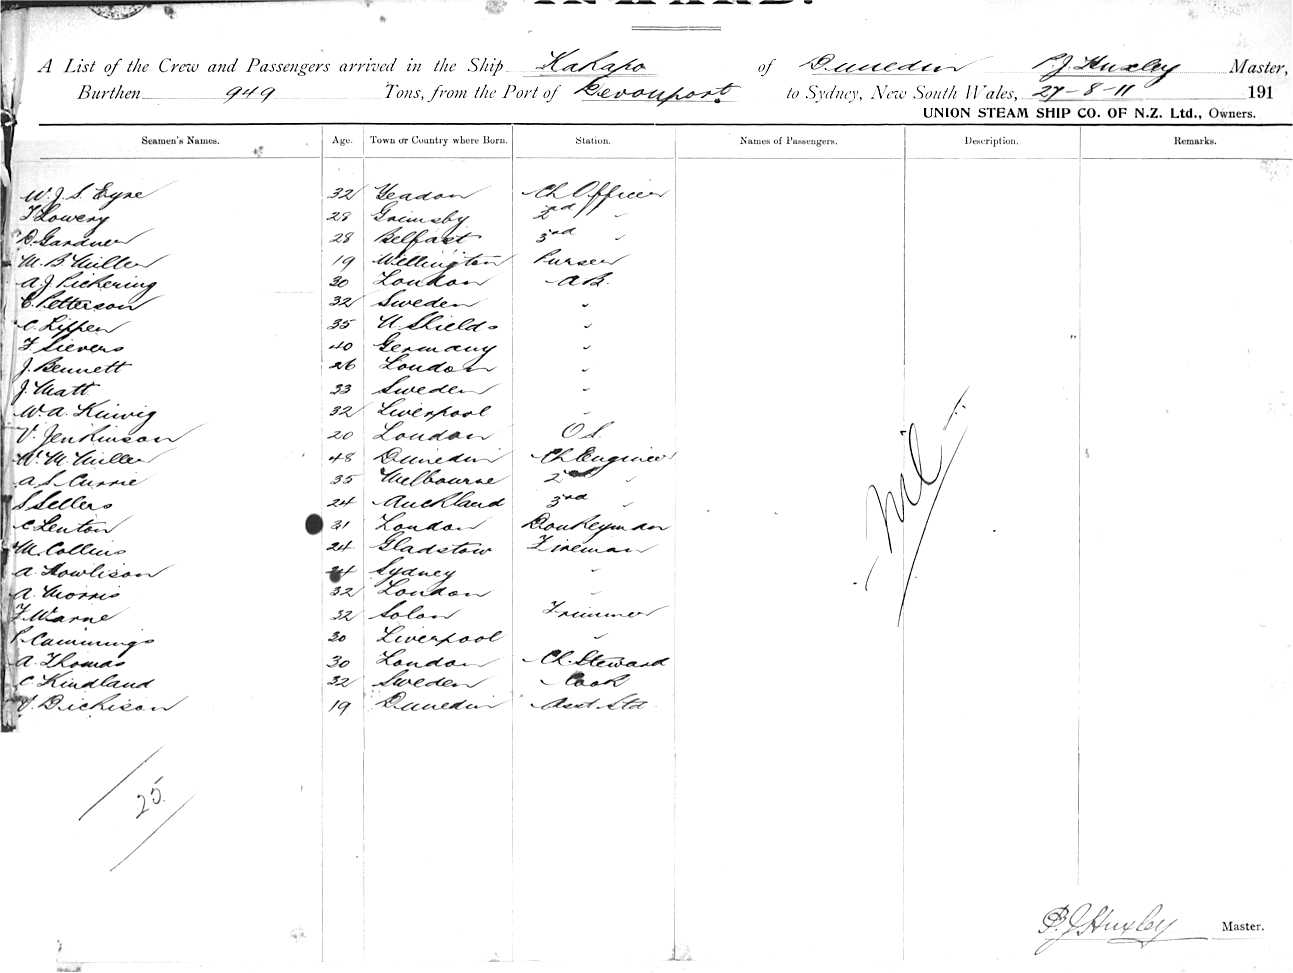 INWARD.
A List of the Crew and Passengers arrived in the Ship Kakapo of Dunedin P.J. Huxley Master,
Burthen 949 Tons, from the Port of Devonport to Sydney, New South Wales, 27-8-11 191
UNION STEAM SHIP CO. OF N.Z. Ltd., Owners.
Seamen's Names. Age. Town or Country where Born. Station. Names of Passengers. Description. Remarks.
W. J. S. Eyre 32 Yeadon Ch Officer
T Lowery 28 Grimsby 2nd "
D. Gardner 28 Belfast 3rd "
M. B Miller 19 Wellington Purser
A. J. Pickering 30 London A.B.
C. Petterson 32 Sweden "
C. Lippen 35 N Shields "
F Sievers 40 Germany "
J. Bennett 26 London "
J. Matt 33 Sweden "
W. A. Kinvig 32 Liverpool "
V. Jenkinson 20 London O S.
W. M. Miller 48 Dunedin Ch Engineer
A S Currie 35 Melbourne 2nd "
S Sellers 24 Auckland 3rd "
C Lenton 31 London Donkeyman
M. Collins 24 Gladstow Fireman
A. Howlison 24 Sydney "
A. Morris 32 London "
F. Warne 32 Solon Trimmer
P. Cummings 30 Liverpool "
A. Thomas 30 London Ch. Steward
C Kindland 32 Sweden Cook
V. Dickison 19 Dunedin Asst Std
Nil
25
P. J Huxley Master.